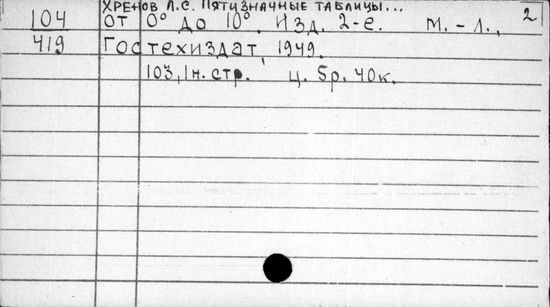 ХРЕНОВ Л.С. ПЯТИЗНАЧНЫЕ ТАБЛИЦЫ... 2
104 ОТ 0° ДО 10°. Изд. 2-е. М.-Л.,
419 Гостехиздат, 1949.
103, 1н. стр. ц. 5р. 40к.